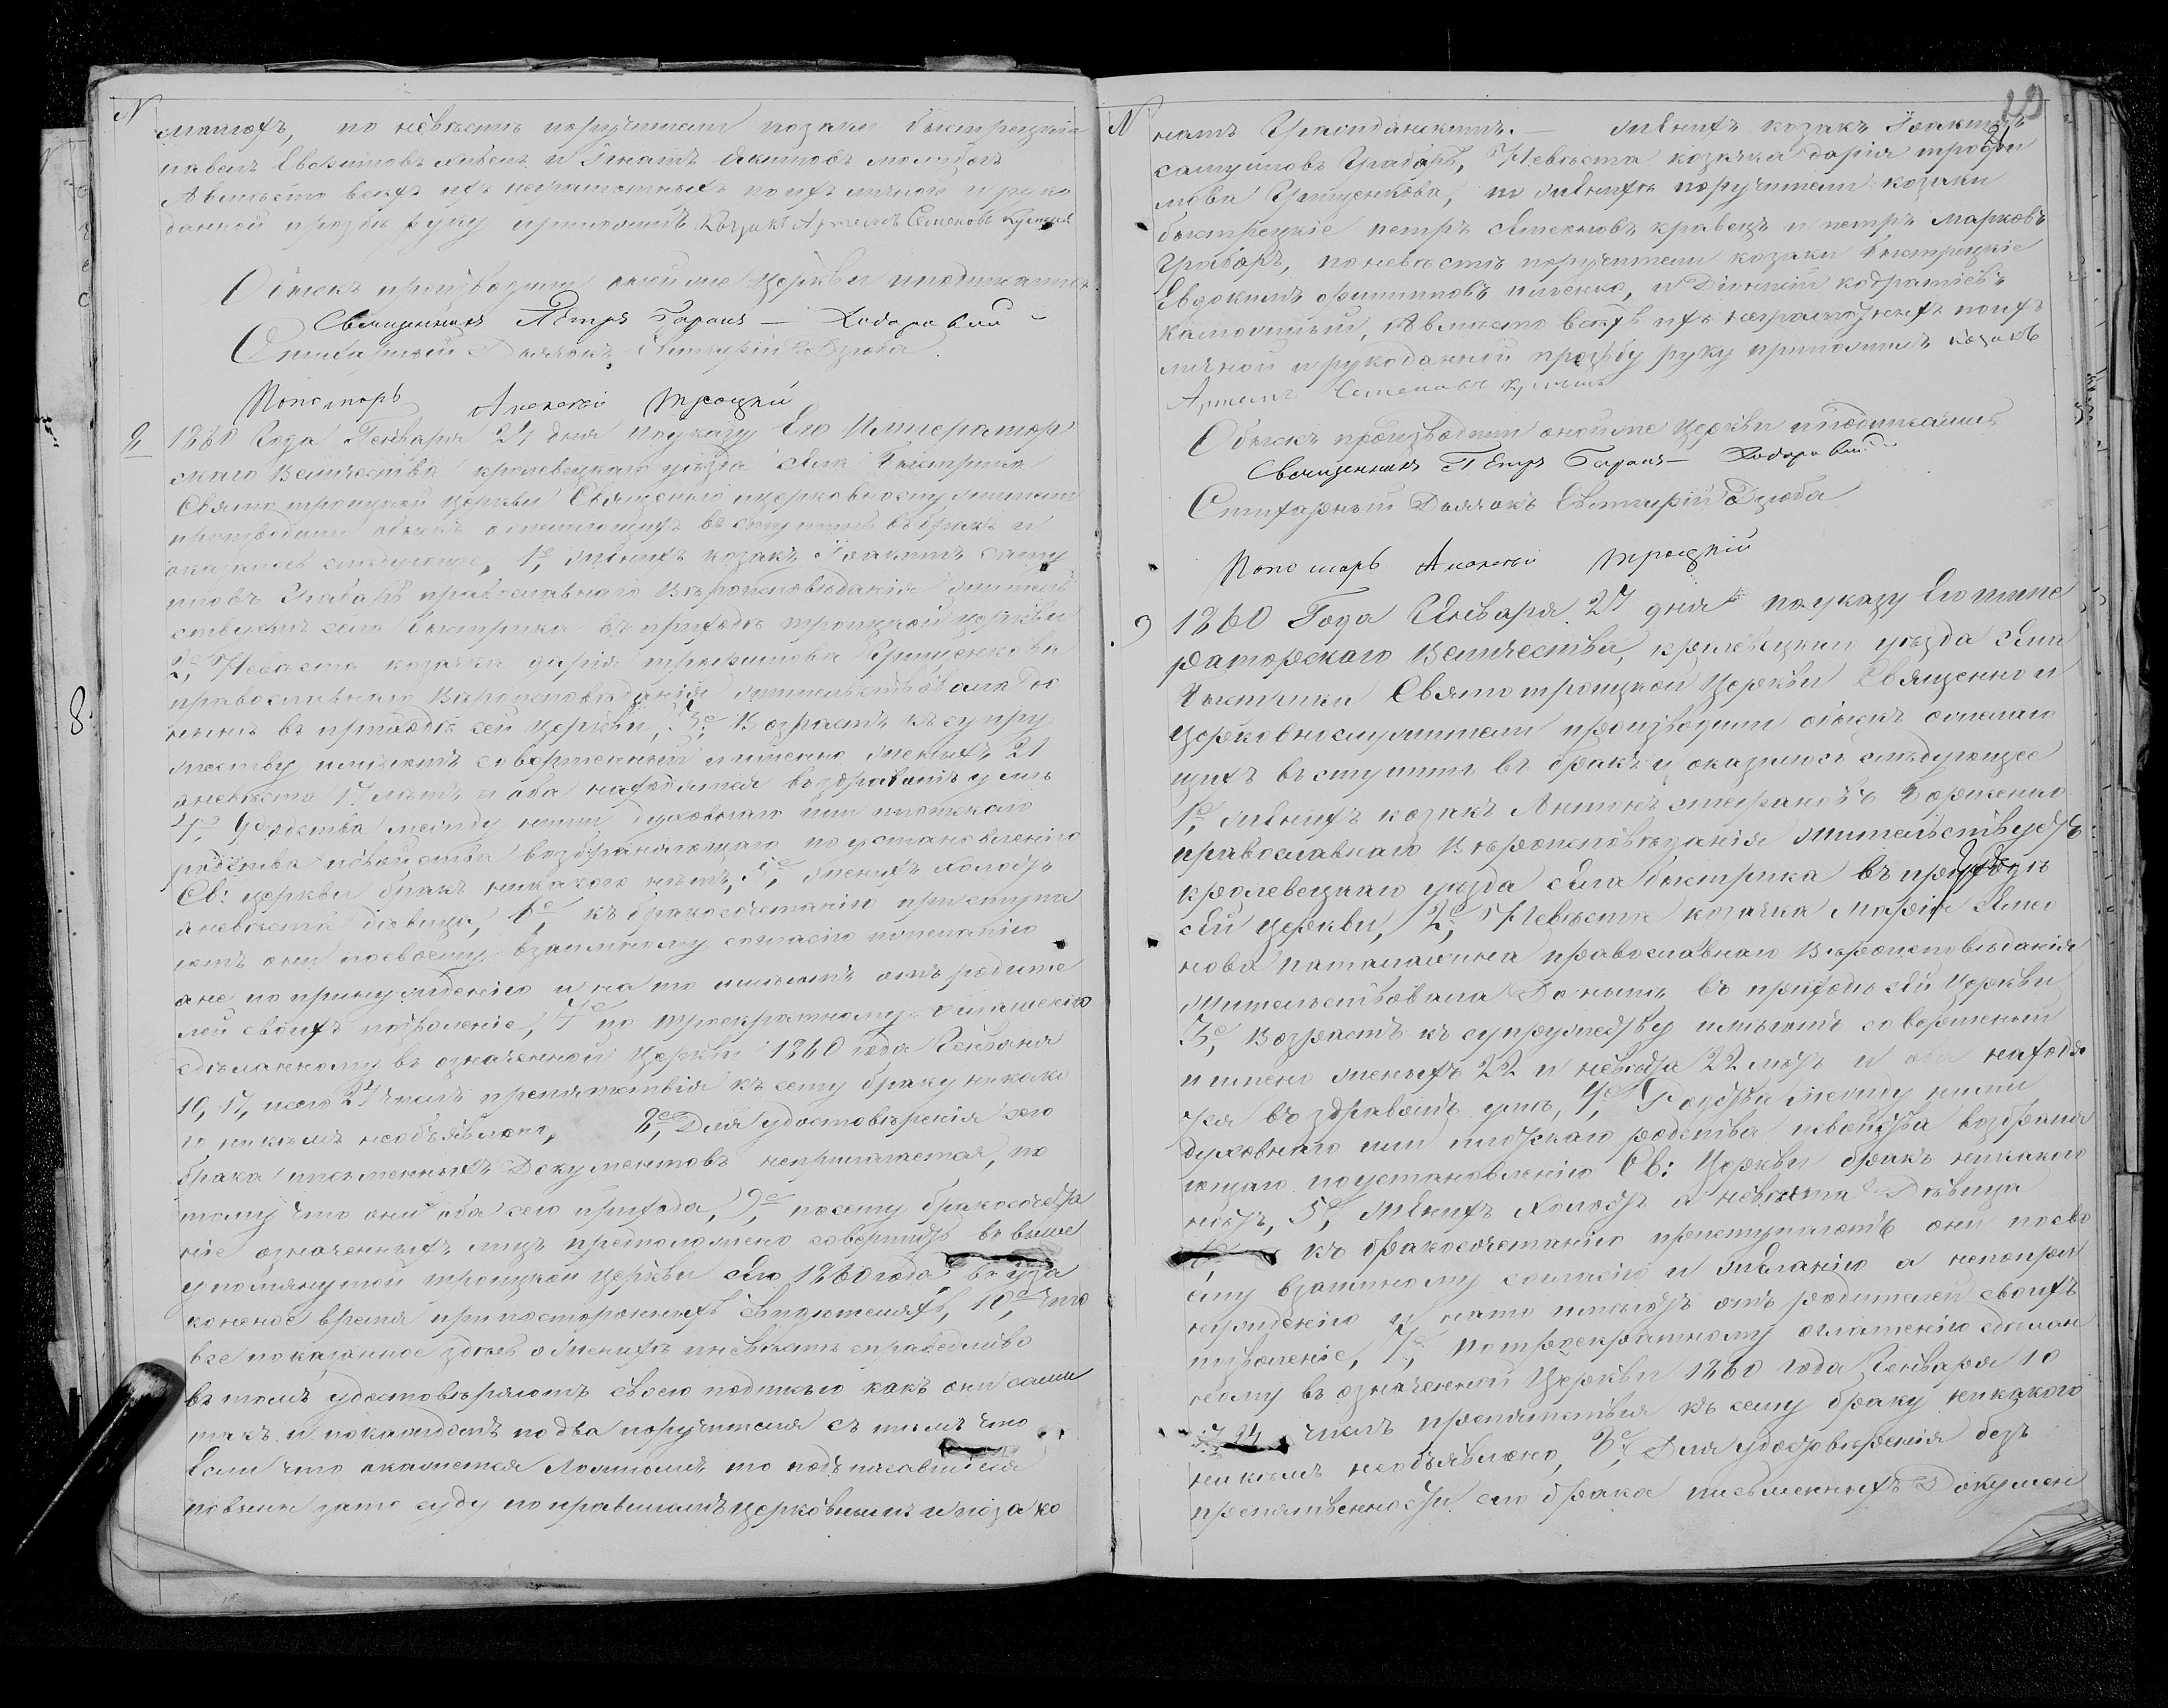 N
матохъ, по невѣсте поручители козаки быстрецкіе
павелъ Евфимовъ и Игнатъ Якимовъ
Авместо всехъ ихъ неграмотныхъ поихъ личной и руко
данной прозбѣ руку приложилъ Козакъ Артемъ Семеновъ
Обыскъ производили оной же церкви иподписались
Священникъ Петръ Гаранъ — Ходоровский
Стихарный Дьячокъ Евтихій Дзюба
Пономарь Алексѣй Троцкий
8
1860 Года Генваря 24 дня поуказу Его Император
скаго величества кролевецкаго уѣзда села Быстрика
Свято троицкой церкви Священно ицерковнослужители
производили обыскъ ожелающихъ вступить въ бракъ и
оказалось следующее, 1е, женихъ козакъ Іоакимъ саму
иловъ Грабарь православнаго вѣроисповѣданія жител
ствуетъ село быстрика въ приходѣ троицкой церкви
2е, Невѣста козачка дарія трофимовна Грищенкова
православнаго вѣроисповѣданія жителствовала до
нынѣ въ приходѣ сей церкви, 3е, Возрастъ къ супру
жеству имѣютъ совершенный именно женихъ 21
аневѣста 17 лѣтъ и оба находятся въздравомъ умѣ
4е, Родства между ними духовнаго или плотскаго
родства исвойства возбраняющаго поустановленію
Св: церкви бракъ никакого нѣтъ, 5е, женихъ холостъ
аневѣста дѣвица, 6е къ бракосочетанію приступа
ютъ они посвоему взаимному согласію ипожеланію
ане попринужденію и на то имѣютъ отъ родите
лей своихъ позволеніе, 7е по троекратному оглашенію
сдѣланному въ означенной церкви 1860 года Генваря
10, 17, исего 24 чиселъ препятствія къ сему браку никако
го никѣмъ необъявлено, 8е, Для удостовѣренія сего
брака писменныхъ документовъ неприлагается, по
тому что они оба сего прихода, 9е, посему бракосочета
ніе означенныхъ лицъ предположено совершить въ выше
упомянутой троицкой церкви сего 1860 года въ уза
коненое время при постороннихъ свидѣтеляхъ, 10е, что
все показанное здѣсь о женихѣ иневѣстѣ справедливо
въ томъ удостовѣряютъ своею подписью какъ они сами
такъ и покаждомъ по два поручителя съ темъ что
Если что окажется ложнымъ то подписавшіеся
повинны зато суду поправиламъ церковнымъ и позако
N
19
намъ Гражданскимъ. — женихъ козакъ Іоакимъ
самуиловъ Грабарь, Невѣста козачка дарія трофи
мова Грищенкова, по женихѣ поручители козаки
быстрецкіе петръ кравецъ и петръ Марковъ
Грабарь, поневѣстѣ поручители козаки быстрецкіе
Евдокимъ филиповъ и Діонисій кодратіевъ
Авместо всехъ ихъ неграмотныхъ поихъ
личной и рукоданной прозьбу руку приложилъ козакъ
Артемъ Семеновъ
Обыскъ производили оной же церкви иподписались
Священникъ Петръ Гаранъ — Ходоровский
Стихарный Дьячокъ Евтихій Дзюба
Пономарь Алексѣй Троцкій
9
1860 Года Января 24 дня поуказу Его импе
раторскаго величества, кролевецкаго уѣзда села
Быстрика Свято троицкой Церкви Священно и
церковнослужители производили обыскъ ожелаю
щихъ вступить въ бракъ и оказалось слѣдующее
1е, женихъ козакъ Антонъ стефановъ
православнаго вѣроисповѣданія жительствуетъ
кролевецкаго уезда села быстрика въ приходѣ
сей церкви, 2е, Невѣста козачка марія
нова православнаго вѣроисповѣданія
жительствовала доныне въ приходѣ сей церкви
3е, возрастъ къ супружеству имѣютъ совершеный
имено женихъ 22 и невѣста 22 лѣтъ и оба находя
тся въ здравомъ умѣ, 4е, Родства между ними
духовнаго или плотскаго родства исвойства возбраня
ющаго поустановленію Св: Церкви бракъ никакого
нѣтъ, 5е, женихъ холостъ а невѣста дѣвица
6е, къ бракосочетанію приступаютъ они посво
ему взаимному согласію и желанію а непопри
нужденію и нато имѣютъ отъ родителей своихъ
позволеніе, 7е, по троекратному оглашенію сдѣлан
ному въ означенной Церкви 1860 года Генваря 10
17, 24 чиселъ препятствія къ сему браку никакого
никѣмъ необъявлено, 8е, Для удостовѣренія безъ
препятственности сего брака письменныхъ Докумен